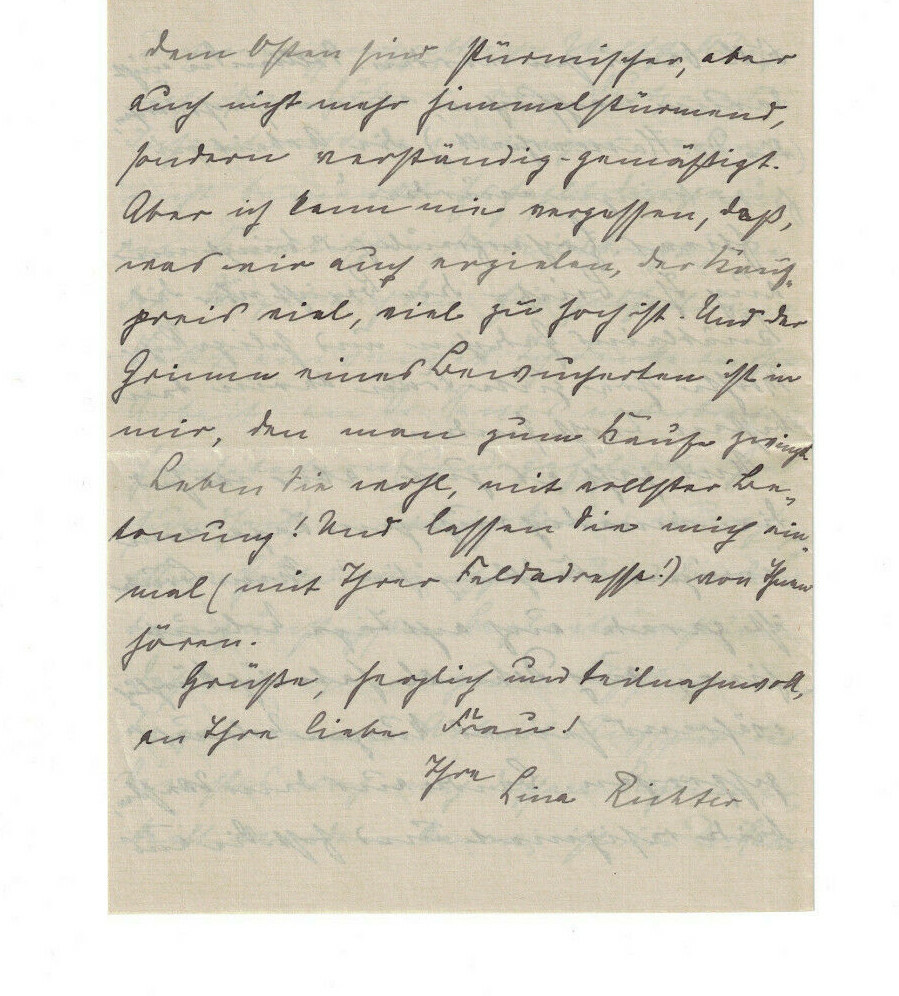 dem Osten sind stürmischer, aber
auch nicht mehr himmelstürmend,
sondern verständig-gemäßigt.
Aber ich kann nie vergessen, daß,
was wir auch erzielen, der Kauf-
preis viel, viel zu hoch ist. Und der
Grimm eines Bewucherten ist in
mir, den man zum Kaufe zwingt.
Leben Sie wohl, mit vollster Be-
tonung! Und lassen Sie mich ein-
mal (mit Ihrer Feldadresse!) von Ihnen
hören.
Grüße, herzlich und teilnahmvoll,
an Ihre liebe Frau!
Ihre
Lina Richter